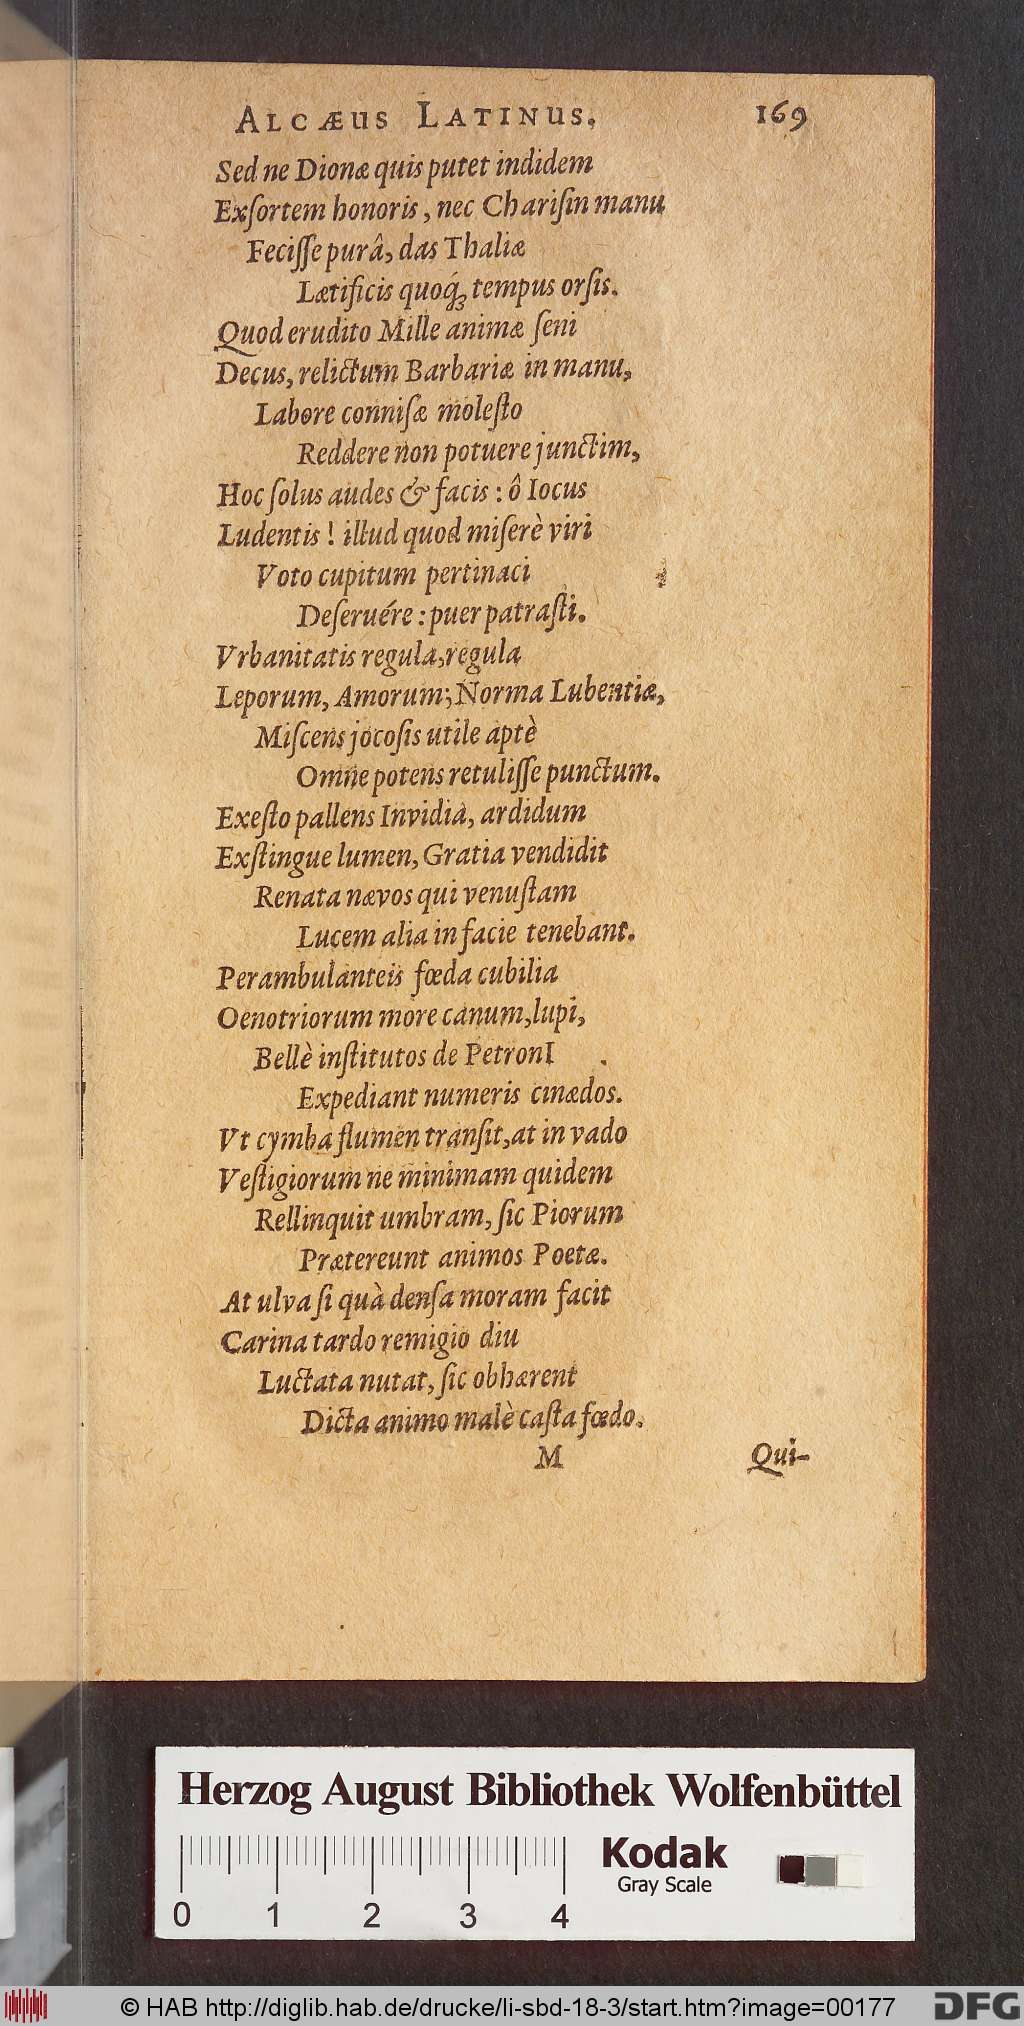 ALCÆUS LATINUS. 169
Sed ne Dionæ quis putet indidem
Exſortem honoris, nec Chariſin manu
Feciſſe purâ, das Thaliæ
Lætificis quoq́ꝫ tempus orſis.
Quod erudito Mille animæ ſeni
Decus, relictum Barbariæ in manu,
Labore conniſæ moleſto
Reddere non potuere junctim,
Hoc ſolus audes & facis : ô Iocus
Ludentis ! illud quod miſerè viri
Voto cupitum pertinaci
Deſeruére : puer patraſti.
Vrbanitatis regula, regula
Leporum, Amorum; Norma Lubentiæ,
Miſcens jocoſis utile aptè
Omne potens retuliſſe punctum.
Exeſto pallens Invidia, ardidum
Exſtingue lumen, Gratia vendidit
Renata nævos qui venuſtam
Lucem alia in facie tenebant.
Perambulanteis fœda cubilia
Oenotriorum more canum, lupi,
Bellè inſtitutos de PetronI
Expediant numeris cinædos.
Vt cymba flumen tranſit, at in vado
Veſtigiorum ne minimam quidem
Rellinquit umbram, ſic Piorum
Prætereunt animos Poetæ.
At ulva ſi quà denſa moram facit
Carina tardo remigio diu
Luctata nutat, ſic obhærent
Dicta animo malè caſta fœdo.
M Qui-
Herzog August Bibliothek Wolfenbüttel
Kodak
Gray Scale
0 1 2 3 4
© HAB http://diglib.hab.de/drucke/li-sbd-18-3/start.htm?image=00177
DFG